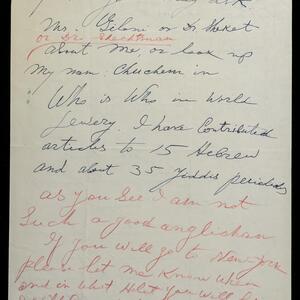 Mrs. Gilani or Dr Theket
or Dr. Shechtman
about me or look up
My name: Chuchem in
Who is Who in World
Jewery. I have Contributed
articles to 15 Hebrew
and about 35 Yiddis periodicals
as you See I am not
Such a good anglichan
If you will go to New York
please let me Know When
and in what Hotel you will